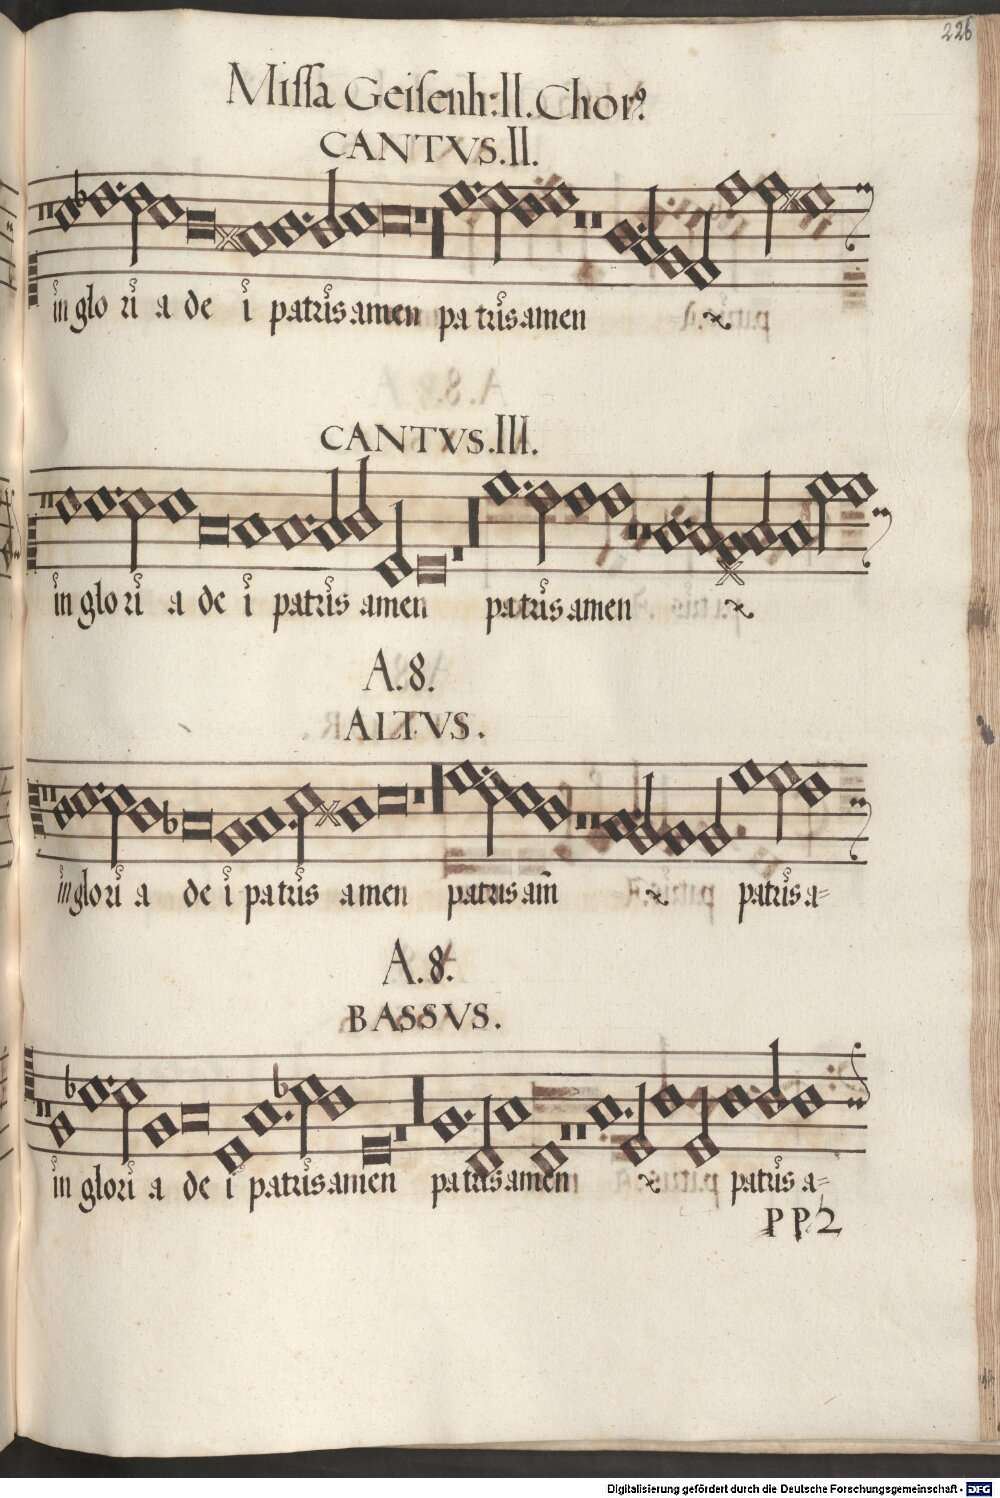 226
Missa Geisenh: II. Chor9
CANTVS. II.
in glo ri a de i patris amen pa tris amen
CANTVS. III.
in glo ri a de i patris amen patris amen
A. 8.
ALTVS.
in glo ri a de i patris amen patris am̄ patris a=
A. 8.
BASSVS.
in glori a de i patris amen patris amen patris a=
PP2
Digitalisierung gefördert durch die Deutsche Forschungsgemeinschaft - DFG